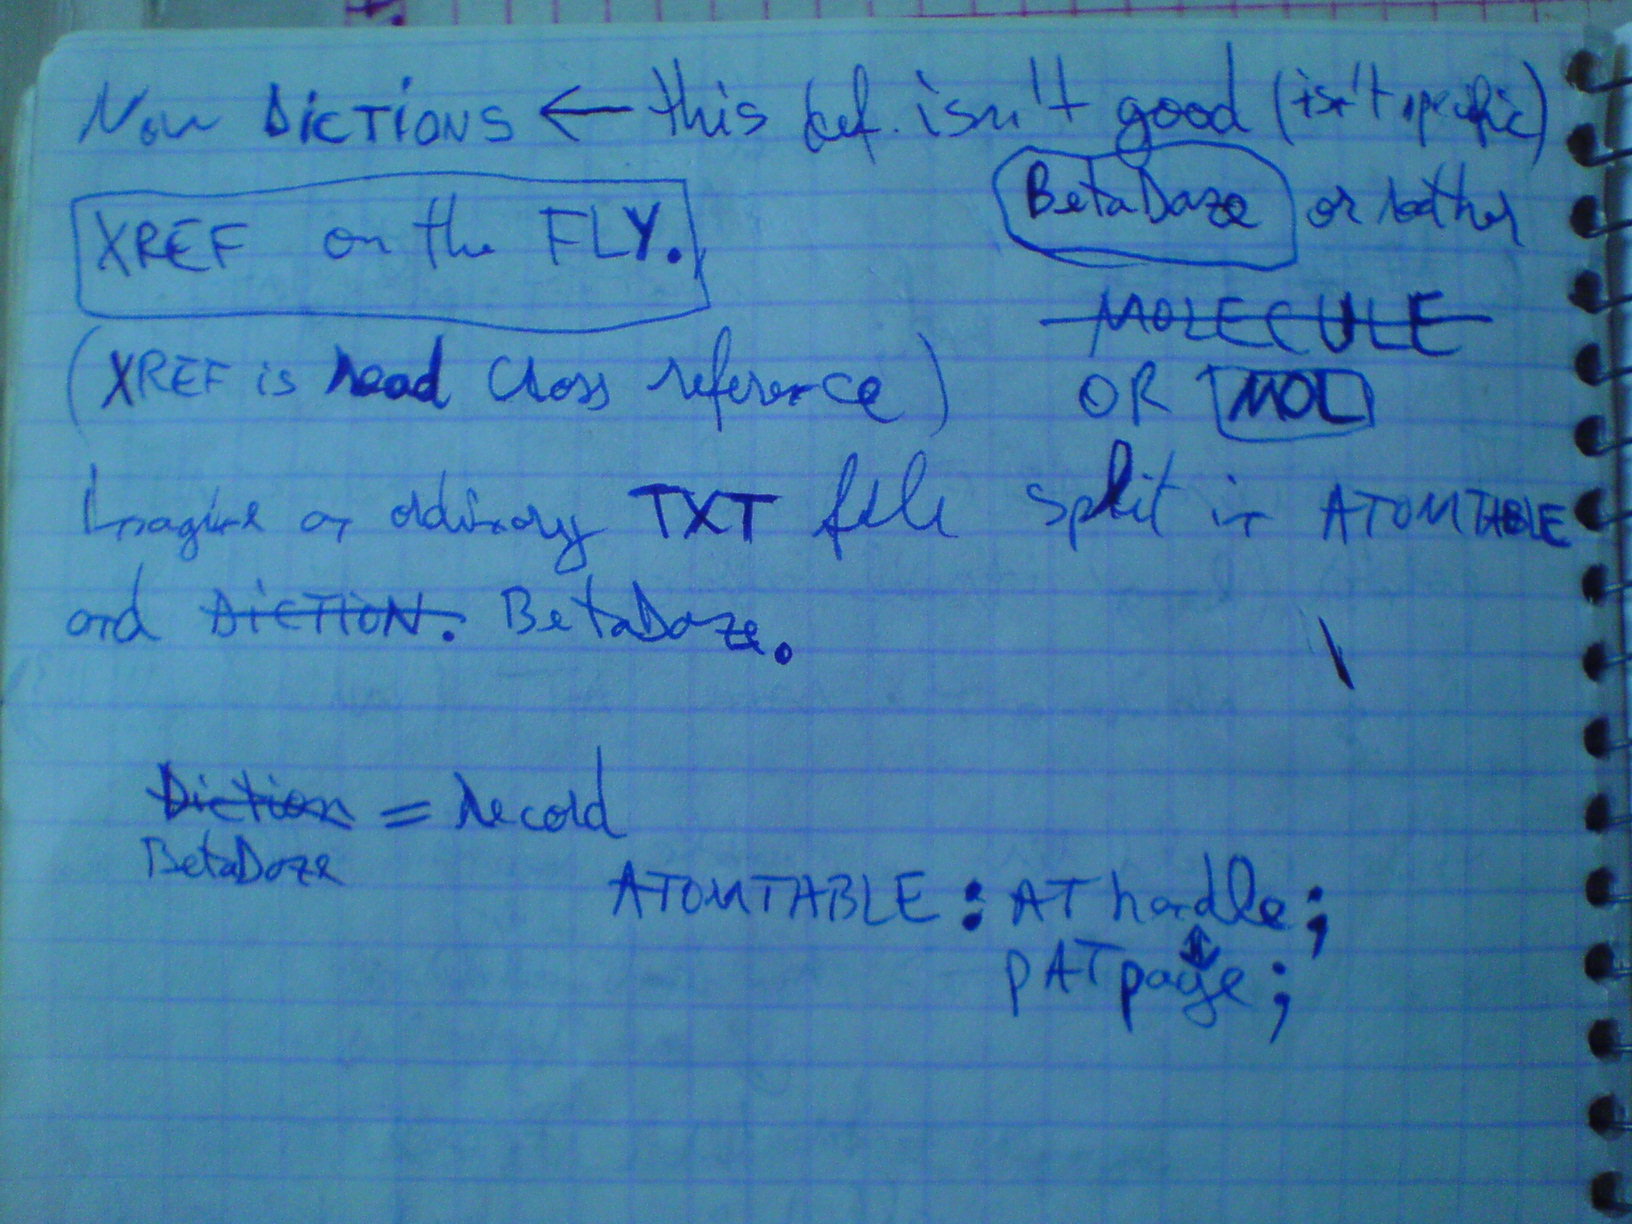 Now DiCTiONS ← this def. isn't good (isn't specific)
BetaDaze or rather
XREF on the FLY.
MOLECULE
(XREF is read Cross reference)
OR MOL
Imagine an ordinary TXT file split in ATOMTABLE
and DiCTiON. BetaDaze.
Diction = record
BetaDaze
ATOMTABLE : AThandle;
pATpage;